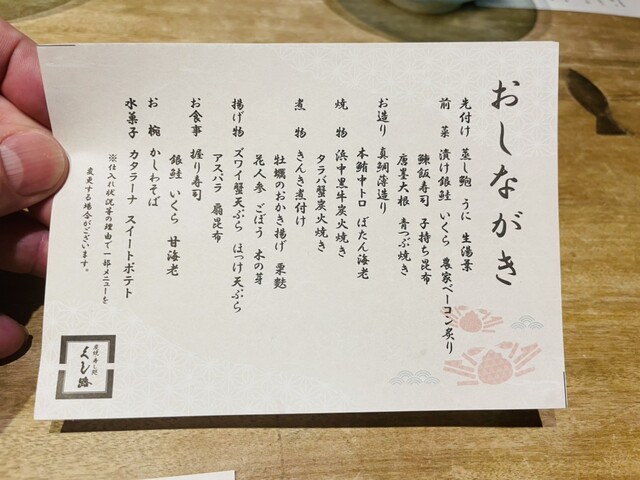 おしながき
先付け 蒸し鮑 うに 生湯葉
前菜 漬け銀鮭 いくら 農家ベーコン炙り
鰊飯寿司 子持ち昆布
唐墨大根 青つぶ焼き
お造り 真鯛薄造り
本鮪中トロ ぼたん海老
焼物 浜中黒牛炭火焼き
タラバ蟹炭火焼き
煮物 きんき煮付け
牡蠣のおかき揚げ 粟麩
花人参 ごぼう 木の芽
揚げ物 ズワイ蟹天ぷら ほっけ天ぷら
アスパラ 扇昆布
お食事 握り寿司
銀鮭 いくら 甘海老
お椀 かしわそば
水菓子 カタラーナ スイートポテト
※仕入れ状況等の理由で一部メニューを
変更する場合がございます。
よし路